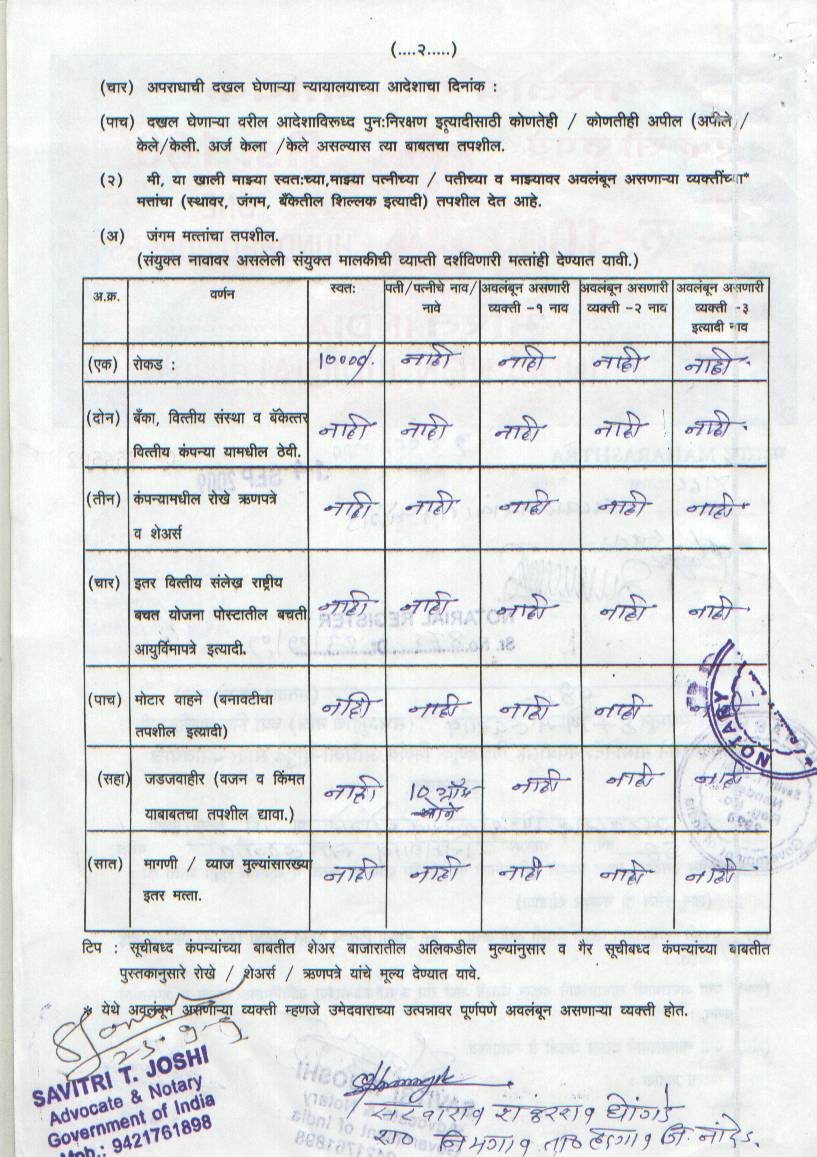 (....२.....)
(चार) अपराधाची दखल घेणाऱ्या न्यायालयाच्या आदेशाचा दिनांक :
(पाच) दखल घेणाऱ्या वरील आदेशाविरुध्द पुन:निरक्षण इत्यादीसाठी कोणतेही / कोणतीही अपील (अपीले /
केले/केली. अर्ज केला /केले असल्यास त्या बाबतचा तपशील.
(२) मी, या खाली माझ्या स्वत:च्या,माझ्या पत्नीच्या / पतीच्या व माझ्यावर अवलंबून असणाऱ्या व्यक्तींच्या*
मत्तांचा (स्थावर, जंगम, बँकेतील शिल्लक इत्यादी) तपशील देत आहे.
(अ) जंगम मत्तांचा तपशील.
(संयुक्त नावावर असलेली संयुक्त मालकीची व्याप्ती दर्शविणारी मत्तांही देण्यात यावी.)
अ.क्र. वर्णन स्वत: पती/पत्नीचे नाव/ अवलंबून असणारी अवलंबून असणारी अवलंबून असणारी
नावे व्यक्ती -१ नाव व्यक्ती -२ नाव व्यक्ती -३
इत्यादी नाव
(एक) रोकड : १००००/- नाही नाही नाही नाही
(दोन) बँका, वित्तीय संस्था व बँकेत्तर नाही नाही नाही नाही नाही
वित्तीय कंपन्या यामधील ठेवी.
(तीन) कंपन्यामधील रोखे ऋणपत्रे नाही नाही नाही नाही नाही
व शेअर्स
(चार) इतर वित्तीय संलेख राष्ट्रीय
बचत योजना पोस्टातील बचती नाही नाही नाही नाही नाही
आयुर्विमापत्रे इत्यादी.
(पाच) मोटार वाहने (बनावटीचा नाही नाही नाही नाही
तपशील इत्यादी)
(सहा) जडजवाहीर (वजन व किंमत नाही 10 ग्रॅम नाही नाही नाही
याबाबतचा तपशील द्यावा.) सोने
(सात) मागणी / व्याज मुल्यांसारख्या नाही नाही नाही नाही नाही
इतर मत्ता.
टिप : सूचीबध्द कंपन्यांच्या बाबतीत शेअर बाजारातील अलिकडील मुल्यांनुसार व गैर सूचीबध्द कंपन्यांच्या बाबतीत
पुस्तकानुसारे रोखे / शेअर्स / ऋणपत्रे यांचे मूल्य देण्यात यावे.
* येथे अवलंबून असणाऱ्या व्यक्ती म्हणजे उमेदवाराच्या उत्पन्नावर पूर्णपणे अवलंबून असणाऱ्या व्यक्ती होत.
NOTARY
SAVITRI T. JOSHI
Advocate & Notary
Government of India
Mob.: 9421761898
ता. हदगाव जि. नांदेड.